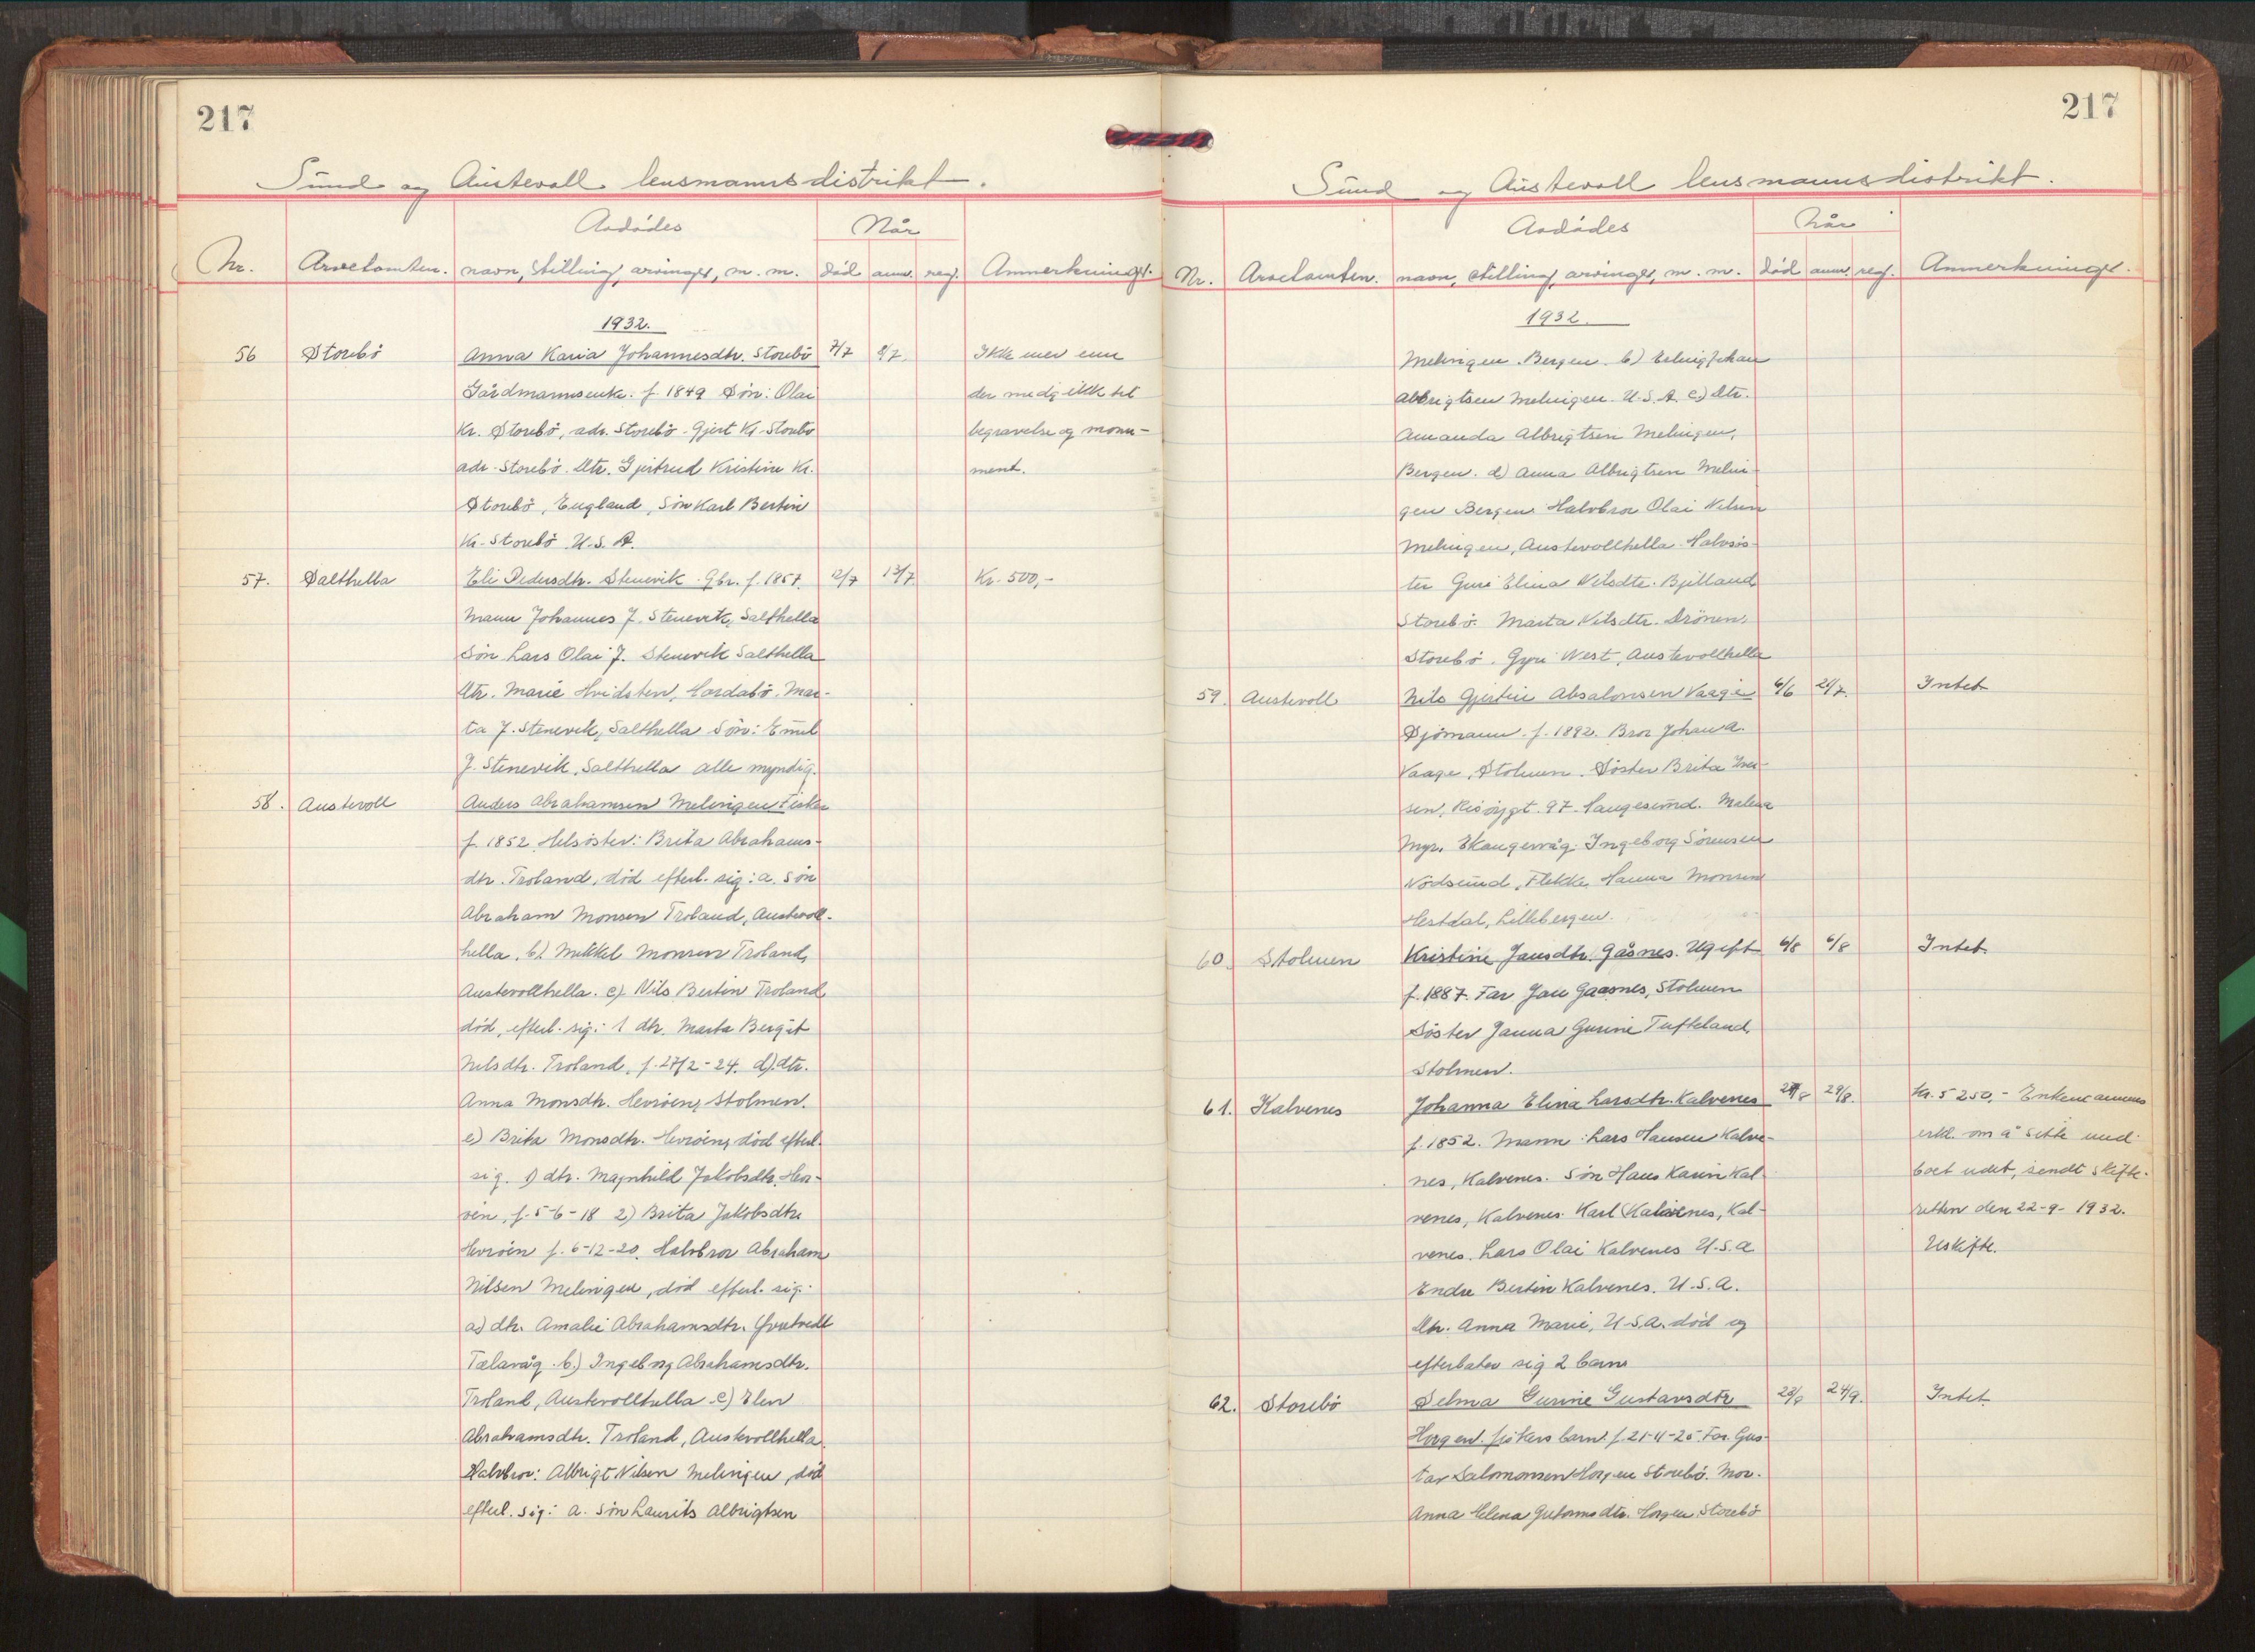 217
Sund og Austevoll lensmannsdistrikt.
Avdødes
Når
Nr. Arvetomten. navn, stilling, arvinger, m. m. død anm. reg. Anmerkninger.
1932.
56 Storebö Anna Karia Johannesdtr. Storebö 7/7 8/7. Ikke mer enn
Gårdmannsenke. f. 1849 Sön: Olai der medg. ikke til
Kr. Storebö, adr. Storebö. Gjert Kr. Storebö begravelse og monu-
adr. Storebö. Dtr. Gjertrud Kristine Kr. ment.
Storebö, England, Sön Karl Bertin
Kr. Storebö U.S.A.
57. Salthella Eli Pedersdtr. Stenevik. Gbr. f. 1857. 12/7 13/7 Kr. 500,-
Mann Johannes J. Stenevik, Salthella
Sön Lars Olai J. Stenevik Salthella
Dtr. Marie Hvidsten, Hardabö. Mar-
ta J. Stenevik, Salthella Sön: Emil
J. Stenevik, Salthella alle myndig.
58. Austevoll Anders Abrahamsen Melingen Fisker
f. 1852. Helsöster: Brita Abrahams-
dtr. Troland, död efterl. sig: a. Sön
Abraham Monsen Troland, Austevoll-
hella. b) Mikkel Monsen Troland,
Austevollhella. c) Nils Bertin Troland
död, efterl. sig: 1 dtr. Marta Bergit
Nilsdtr. Troland, f. 27/2-24. d) dtr.
Anna Monsdtr. Hevröen, Stolmen.
e) Brita Monsdtr. Hevröen, död efterl.
sig. 1) dtr. Magnhild Jakobsdtr. Hev-
röen, f. 5-6-18 2) Brita Jakobsdtr.
Hevröen f. 6-12-20. Halvbror Abraham
Nilsen Melingen, död efterl. sig:
a) dtr. Amalie Abrahamsdtr.
Telavåg. b.) Ingeborg Abrahamsdtr.
Troland, Austevollhella. c) Elen
Abrahamsdtr. Troland, Austevollhella.
Halvbror: Albrigt Nilsen Melingen, död
efterl. sig: a. Sön Laurits Albrigtsen
217
Sund og Austevoll lensmannsdistrikt.
Avdødes
Når
Nr. Arvetomten. navn, stilling, arvinger, m. m. død anm. reg. Anmerkninger.
1932.
Melingen. Bergen. b) Johan
Albrigtsen Melingen. U.S.A. c) Dtr.
Amanda Albrigtsen Melingen,
Bergen. d) Anna Albrigtsen Melin-
gen Bergen. Halvbror Olai Nilsen
Melingen, Austevollhella. Halvsös-
ter Guri Elina Nilsdtr. Bjelland
Storebö. Marta Nilsdtr. Drönen,
Storebö. Gyri West, Austevollhella
59. Austevoll Nils Gjertin Absalonsen Vaage 6/6 21/7. Intet
Sjömann. f. 1892. Bror Johan A.
Vaage, Stolmen. Söster Brita Iver-
sen, Risöygt. 97. Haugesund. Malena
Myr. Skangevåg. Ingeborg Sörensen
Nordsund, Flekke, Hanna Monsen
Hestdal, Lillebergen.
60. Stolmen Kristine Jansdtr. Gåsnes. Ugift 6/8 6/8 Intet.
f. 1887. Far Jan Gaasnes, Stolmen
Söster Janna Gurine Tufteland
Stolmen.
61. Kalvenes Johanna Elina Larsdtr. Kalvenes 29/8 29/8. Kr. 5250,-
f. 1852. Mann: Lars Hansen Kalve- erkl. om å sitte med
nes, Kalvenes. Sön Hans Karin Kal- boet udelt, sendt skifte-
venes, Kalvenes. Karl Kalvenes, Kal- retten den 22-9-1932.
venes. Lars Olai Kalvenes U.S.A. Uskifte.
Endre Bertin Kalvenes. U.S.A.
Dtr. Anna Marie, U.S.A. död og
efterlater sig 2 barn
62. Storebö Selma Gurine Gustavsdtr 23/9 24/9. Intet
Horgen. fiskers barn. f. 21-4-25. Far Gus-
tav Salomonsen Horgen Storebö. Mor.
Anna Elena Guttormsdtr. Horgen, Storebö